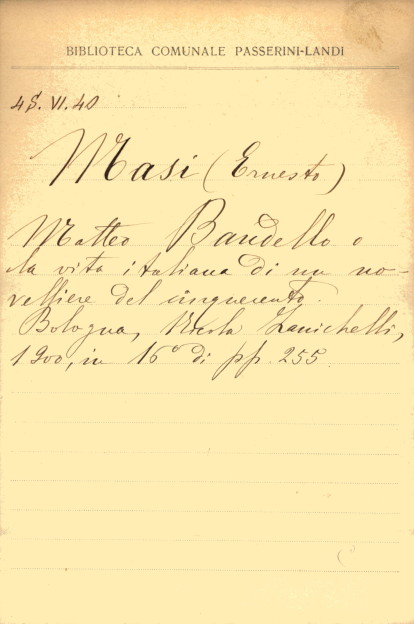 BIBLIOTECA COMUNALE PASSERINI-LANDI
4S. VI. 40
Masi (Ernesto)
Matteo Bandello o
la vita italiana di un no-
velliere del cinquecento.
Bologna, Nicola Zanichelli,
1900, in 16° di pp. 255